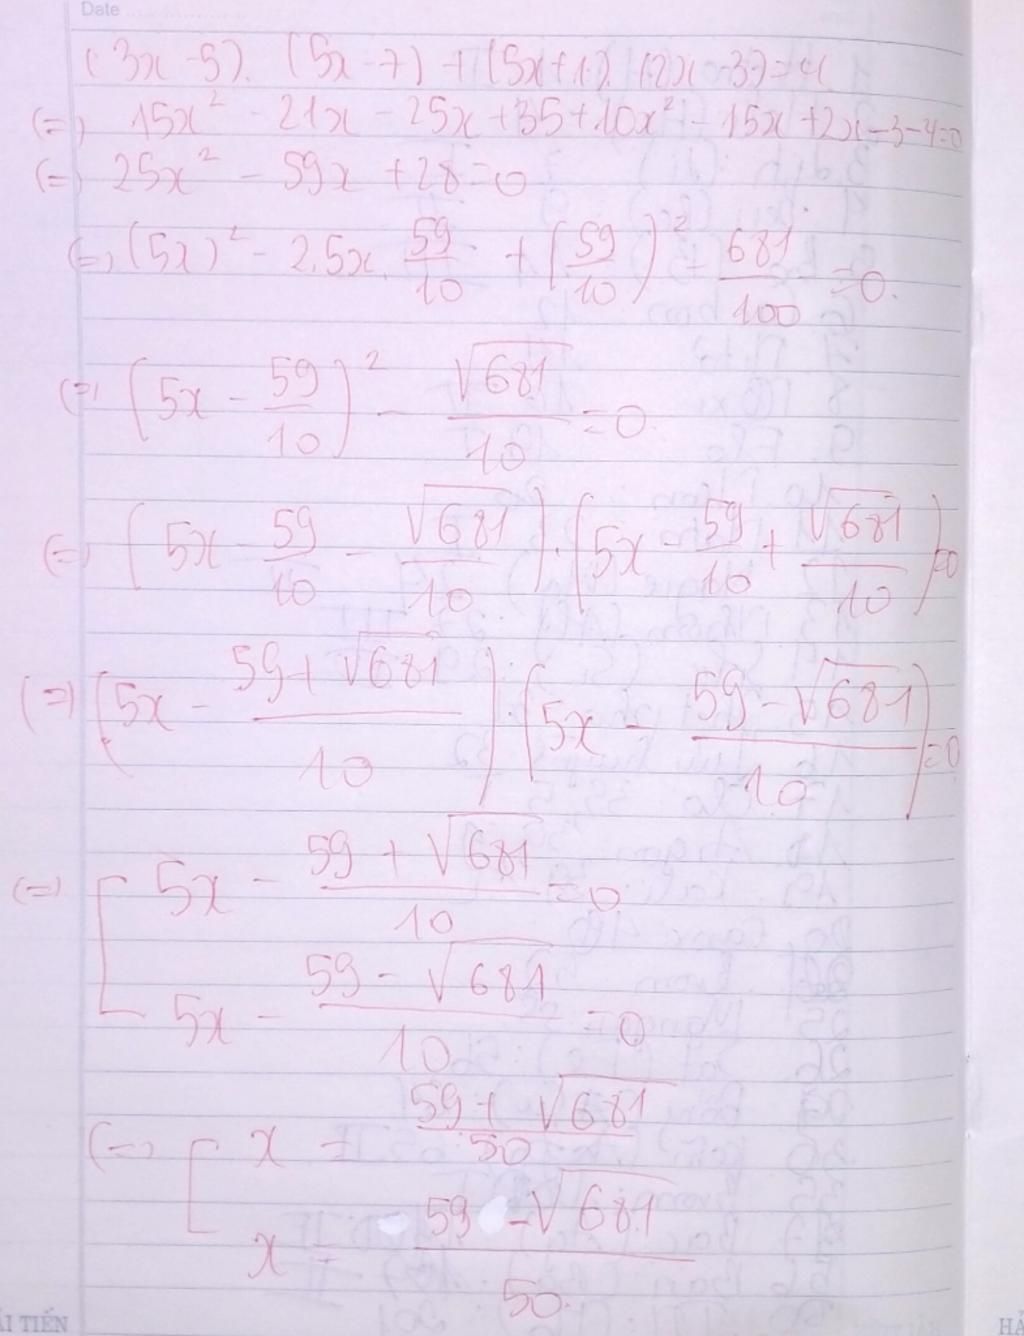 Date
(3x-5).(5x-7)+(5x+1).(2x-3)=4
(=) 15x² - 21x - 25x + 35 + 10x² - 15x + 2x - 3 - 4 = 0
(=) 25x² - 59x + 28 = 0
(=) (5x)² - 2.5x. 59/10 + (59/10)² - 681/100 = 0.
(=) (5x - 59/10)² - √681/10 = 0
(=) (5x - 59/10 - √681/10).(5x - 59/10 + √681/10) = 0
(=) (5x - (59+√681)/10).(5x - (59-√681)/10) = 0
(=) [ 5x - (59+√681)/10 = 0
5x - (59-√681)/10 = 0
(=) [ x = (59+√681)/50
x = (59-√681)/50.
ẢI TIẾN
HẢ